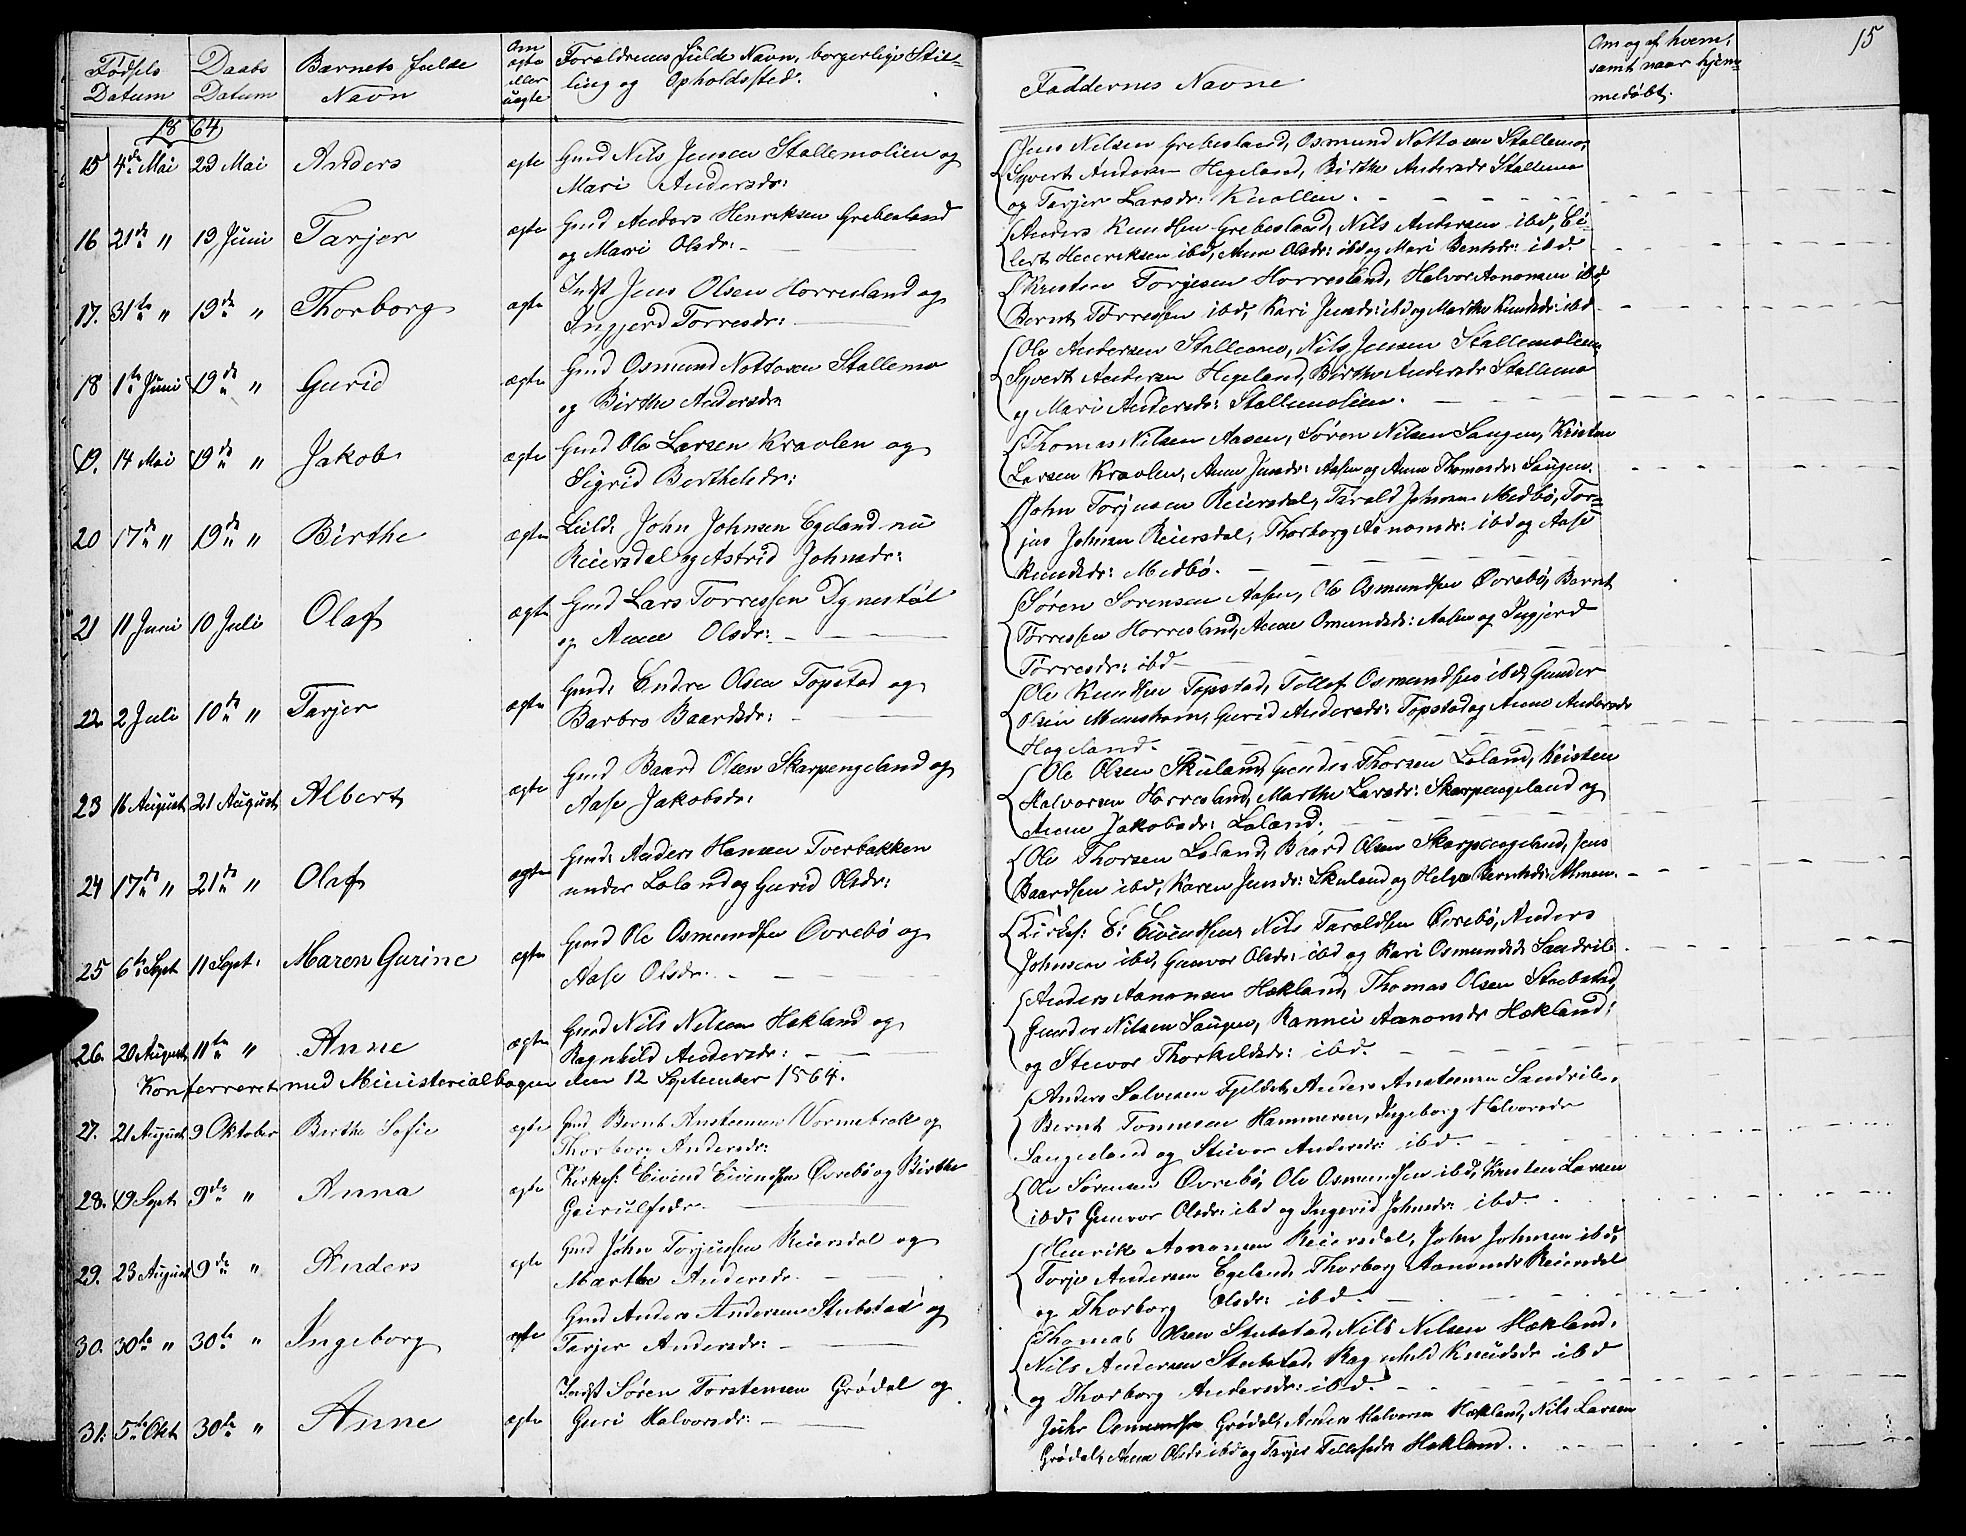 15
Fødsels Datum
Daabs Datum
Barnets fulde Navn
Om ægte eller uægte
Forældrenes fulde Navn, borgerlige Stilling og Opholdssted.
Faddernes Navne
Om og af hvem, samt naar hjemmedøbt.
1864
15 4de Mai 23 Mai Anders ægte Gmd Nils Jensen Stallemolien og
Mari Andersdr:
Jens Nilsen Grebesland, Osmund Nottosen Stallemo,
Syvert Andersen Hegeland, Birthe Andersdr Stallemo
og Tarjer Larsdr: Knollen.
16 21de " 19 Juni Tarjer ægte Gmd Anders Henriksen Grebesland
og Mari Olsdr:
Anders Knudsen Grebesland, Nils Andersen ibd, Ei-
lert Henriksen ibd, Anne Olsdr: ibd og Mari Bentsdr: ibd
17. 31te " 19de " Thorborg ægte Indst Jens Olsen Horresland og
Ingjerd Torresdr:
Kristen Torjesen Horresland, Halvor Aanonsen ibd,
Bernt Torressen ibd, Kari Jensdr: ibd og Marthe Knudsdr: ibd
18 1te Juni 19de " Gurid ægte Gmd Osmund Nottosen Stallemo
og Birthe Andersdr
Ole Andersen Stallemo, Nils Jensen Stallemolien
Syvert Andersen Hegeland, Birthe Andersdr Stallemo
og Mari Andersdr: Stallemolien.
19. 14 Mai 19de " Jakob ægte Gmd Ole Larsen Kravlen og
Sigrid Berthelsdr:
Thomas Nilsen Aasen, Søren Nilsen Saugen, Kristen
Larsen Kravlen, Anne Jensdr: Aasen og Anne Thomasdr: Saugen.
20 17de " 19de " Birthe ægte Leild: John Johnsen Egeland nu
Reiersdal og Astrid Johnsdr:
John Torjusen Reiersdal, Tarald Johnsen Medbø, Tor-
jus Johnsen Reiersdal, Thorborg Aanonsdr: ibd og Aase
Knudsdr: Medbø.
21 11 Juni 10 Juli Olaf ægte Gmd Lars Torressen Dynestøl
og Anne Olsdr:
Søren Sørensen Aasen, Ole Osmundsen Øvrebø, Bernt
Torressen Horresland, Anne Omundsdr: Aasen og Ingjerd
Torresdr: ibd
22. 2 Juli 10de " Tarjer ægte Gmd: Endre Olsen Topstad og
Barbro Baardsdr:
Ole Knudsen Topstad, Tellef Osmundsen ibd, Gunder
Olsen Monshom, Gurid Andersdr: Topstad og Anne Andersdr
Hegeland.
23 16 August 21 August Albert ægte Gmd Baard Olsen Skarpengeland og
Aase Jakobsdr:
Ole Olsen Skuland, Gunder Thorsen Loland, Kristen
Halvorsen Horresland, Marthe Larsdr: Skarpengeland og
Anne Jakobsdr: Loland.
24 17de " 21de " Olaf ægte Gmd: Anders Hansen Tverbakken
under Loland og Gurid Olsdr:
Ole Thorsen Loland, Baard Olsen Skarpengeland, Jens
Baardsen ibd, Karen Jensdr: Skuland og Helga Berntsdr: Almen.
25 6te Sept 11 Sept: Maren Gurine ægte Gmd Ole Osmundsen Øvrebø og
Aase Olsdr:
Kirkes: E: Eivendsen, Nils Taraldsen Øvrebø, Anders
Johnsen ibd, Gunvor Olsdr: ibd og Kari Osmundsdr Sandrib
26. 20 August 11te " Anne ægte Gmd Nils Nilsen Hækland og
Ragnhild Andersdr:
Anders Aanonsen Hækland, Thomas Olsen Stubstad,
Gunder Nilsen Saugen, Rannei Aanonsdr Hækland,
og Stuvor Thorkildsdr: ibd.
Konferreret med Ministerialbogen den 12 September 1864.
27. 21 August 9 Oktober Berthe Sofie ægte Gmd Bernt Anstensen Vormebrok og
Thorborg Andersdr:
Anders Salvesen Fjeldet, Anders Anstensen Sandrib,
Bernt Tønnesen Hammeren, Ingeborg Halvorsdr
Sangesland og Stuvor Andersdr: ibd.
28. 19 Sept 9de " Anna ægte Kirkes: Eivend Eivendsen Øvrebø og Birthe
Geirulfsdr.
Ole Sørensen Øvrebø, Ole Osmundsen ibd, Kristen Larsen
ibd, Gunvor Olsdr: ibd og Ingerid Johnsdr: ibd.
29. 23 August 9de " Anders ægte Gmd John Torjussen Reiersdal og
Marthe Andersdr.
Henrik Aanonsen Reiersdal, John Johnsen ibd,
Torje Andersen Egeland, Thorborg Aanonsdr Reiersdal
og Thorborg Olsdr: ibd.
30. 30te " 30te " Ingeborg ægte Gmd Anders Andersen Stubstad og
Tarjer Andersdr:
Thomas Olsen Stubstad, Nils Nilsen Hækland,
Nils Andersen Stubstad, Ragnhild Knudsdr ibd
og Thorborg Andersdr: ibd.
31. 5te Okt 30te " Anne ægte Indst Søren Torstensen Grødal og
Guri Halvorsdr:
Osmundsen Grødal, Anders Halvorsen Hækland, Nils Larsen
Grødal, Anne Olsdr ibd og Tarjer Tellefsdr Hækland.